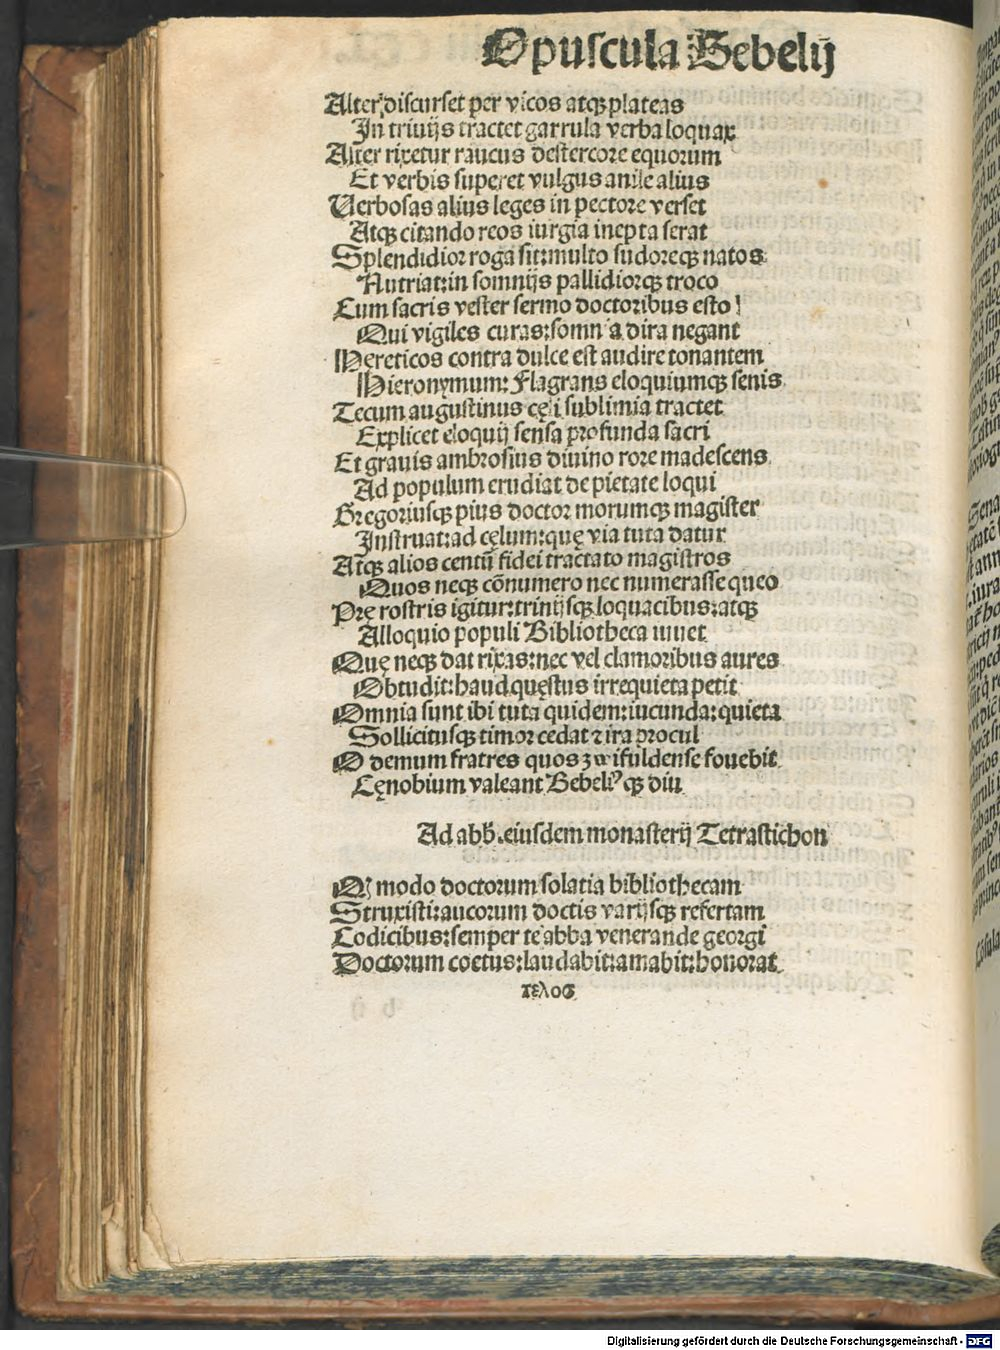 Opuscula Bebelij
Alter discurset per vicos atqꝫ plateas
In triuijs tractet garrula verba loquax
Alter rixetur raucus de stercore equorum
Et verbis superet vulgus anile alius
Verbosas alius leges in pectore verset
Atqꝫ citando reos iurgia inepta serat
Splendidior roga sit: multo sudoreqꝫ natos
Nutriat: in somnijs pallidiorqꝫ troco
Cum sacris vester sermo doctoribus esto
Qui vigiles curas: somnia dira negant
Hereticos contra dulce est audire tonantem
Hieronymum: flagrans eloquiumqꝫ senis
Tecum augustinus cęli sublimia tractet
Explicet eloquij sensa profunda sacri
Et grauis ambrosius diuino rore madescens
Ad populum erudiat de pietate loqui
Gregoriusqꝫ pius doctor morumqꝫ magister
Instruat: ad cęlum: quę via tuta datur
Atqꝫ alios centũ fidei tractato magistros
Quos neqꝫ cõnumero nec numerasse queo
Prę rostris igitur: triuijsqꝫ loquacibus: atqꝫ
Alloquio populi Bibliotheca iuuet
Quę neqꝫ dat rixas: nec vel clamoribus aures
Obtudit: haud quęstus irrequieta petit
Omnia sunt ibi tuta quidem: iucunda: quieta
Sollicitusqꝫ timor cedat ⁊ ira procul
O demum fratres quos zwifuldense fouebit
Cęnobium valeant Bebeliꝰqꝫ diu
Ad abb̃. eiusdem monasterij Tetrastichon
Qꝫ modo doctorum solatia bibliothecam
Struxisti: aucorum doctis varijsqꝫ refertam
Codicibus: semper te abba venerande georgi
Doctorum coetus: laudabit: amabit: honorat
τελος
b ij
Digitalisierung gefördert durch die Deutsche Forschungsgemeinschaft - DFG